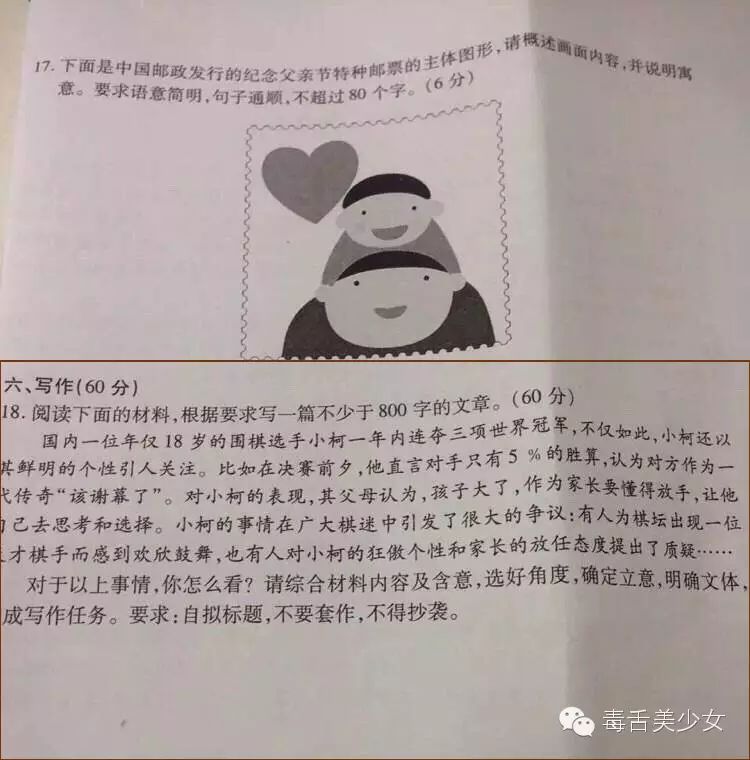 17. 下面是中国邮政发行的纪念父亲节特种邮票的主体图形,请概述画面内容,并说明寓
意。要求语意简明,句子通顺,不超过80个字。(6分)
六、写作(60分)
18. 阅读下面的材料,根据要求写一篇不少于800字的文章。(60分)
国内一位年仅18岁的围棋选手小柯一年内连夺三项世界冠军,不仅如此,小柯还以
其鲜明的个性引人关注。比如在决赛前夕,他直言对手只有5%的胜算,认为对方作为一
代传奇“该谢幕了”。对小柯的表现,其父母认为,孩子大了,作为家长要懂得放手,让他
自己去思考和选择。小柯的事情在广大棋迷中引发了很大的争议:有人为棋坛出现一位
天才棋手而感到欢欣鼓舞,也有人对小柯的狂傲个性和家长的放任态度提出了质疑……
对于以上事情,你怎么看?请综合材料内容及含意,选好角度,确定立意,明确文体,
成写作任务。要求:自拟标题,不要套作,不得抄袭。
毒舌美少女